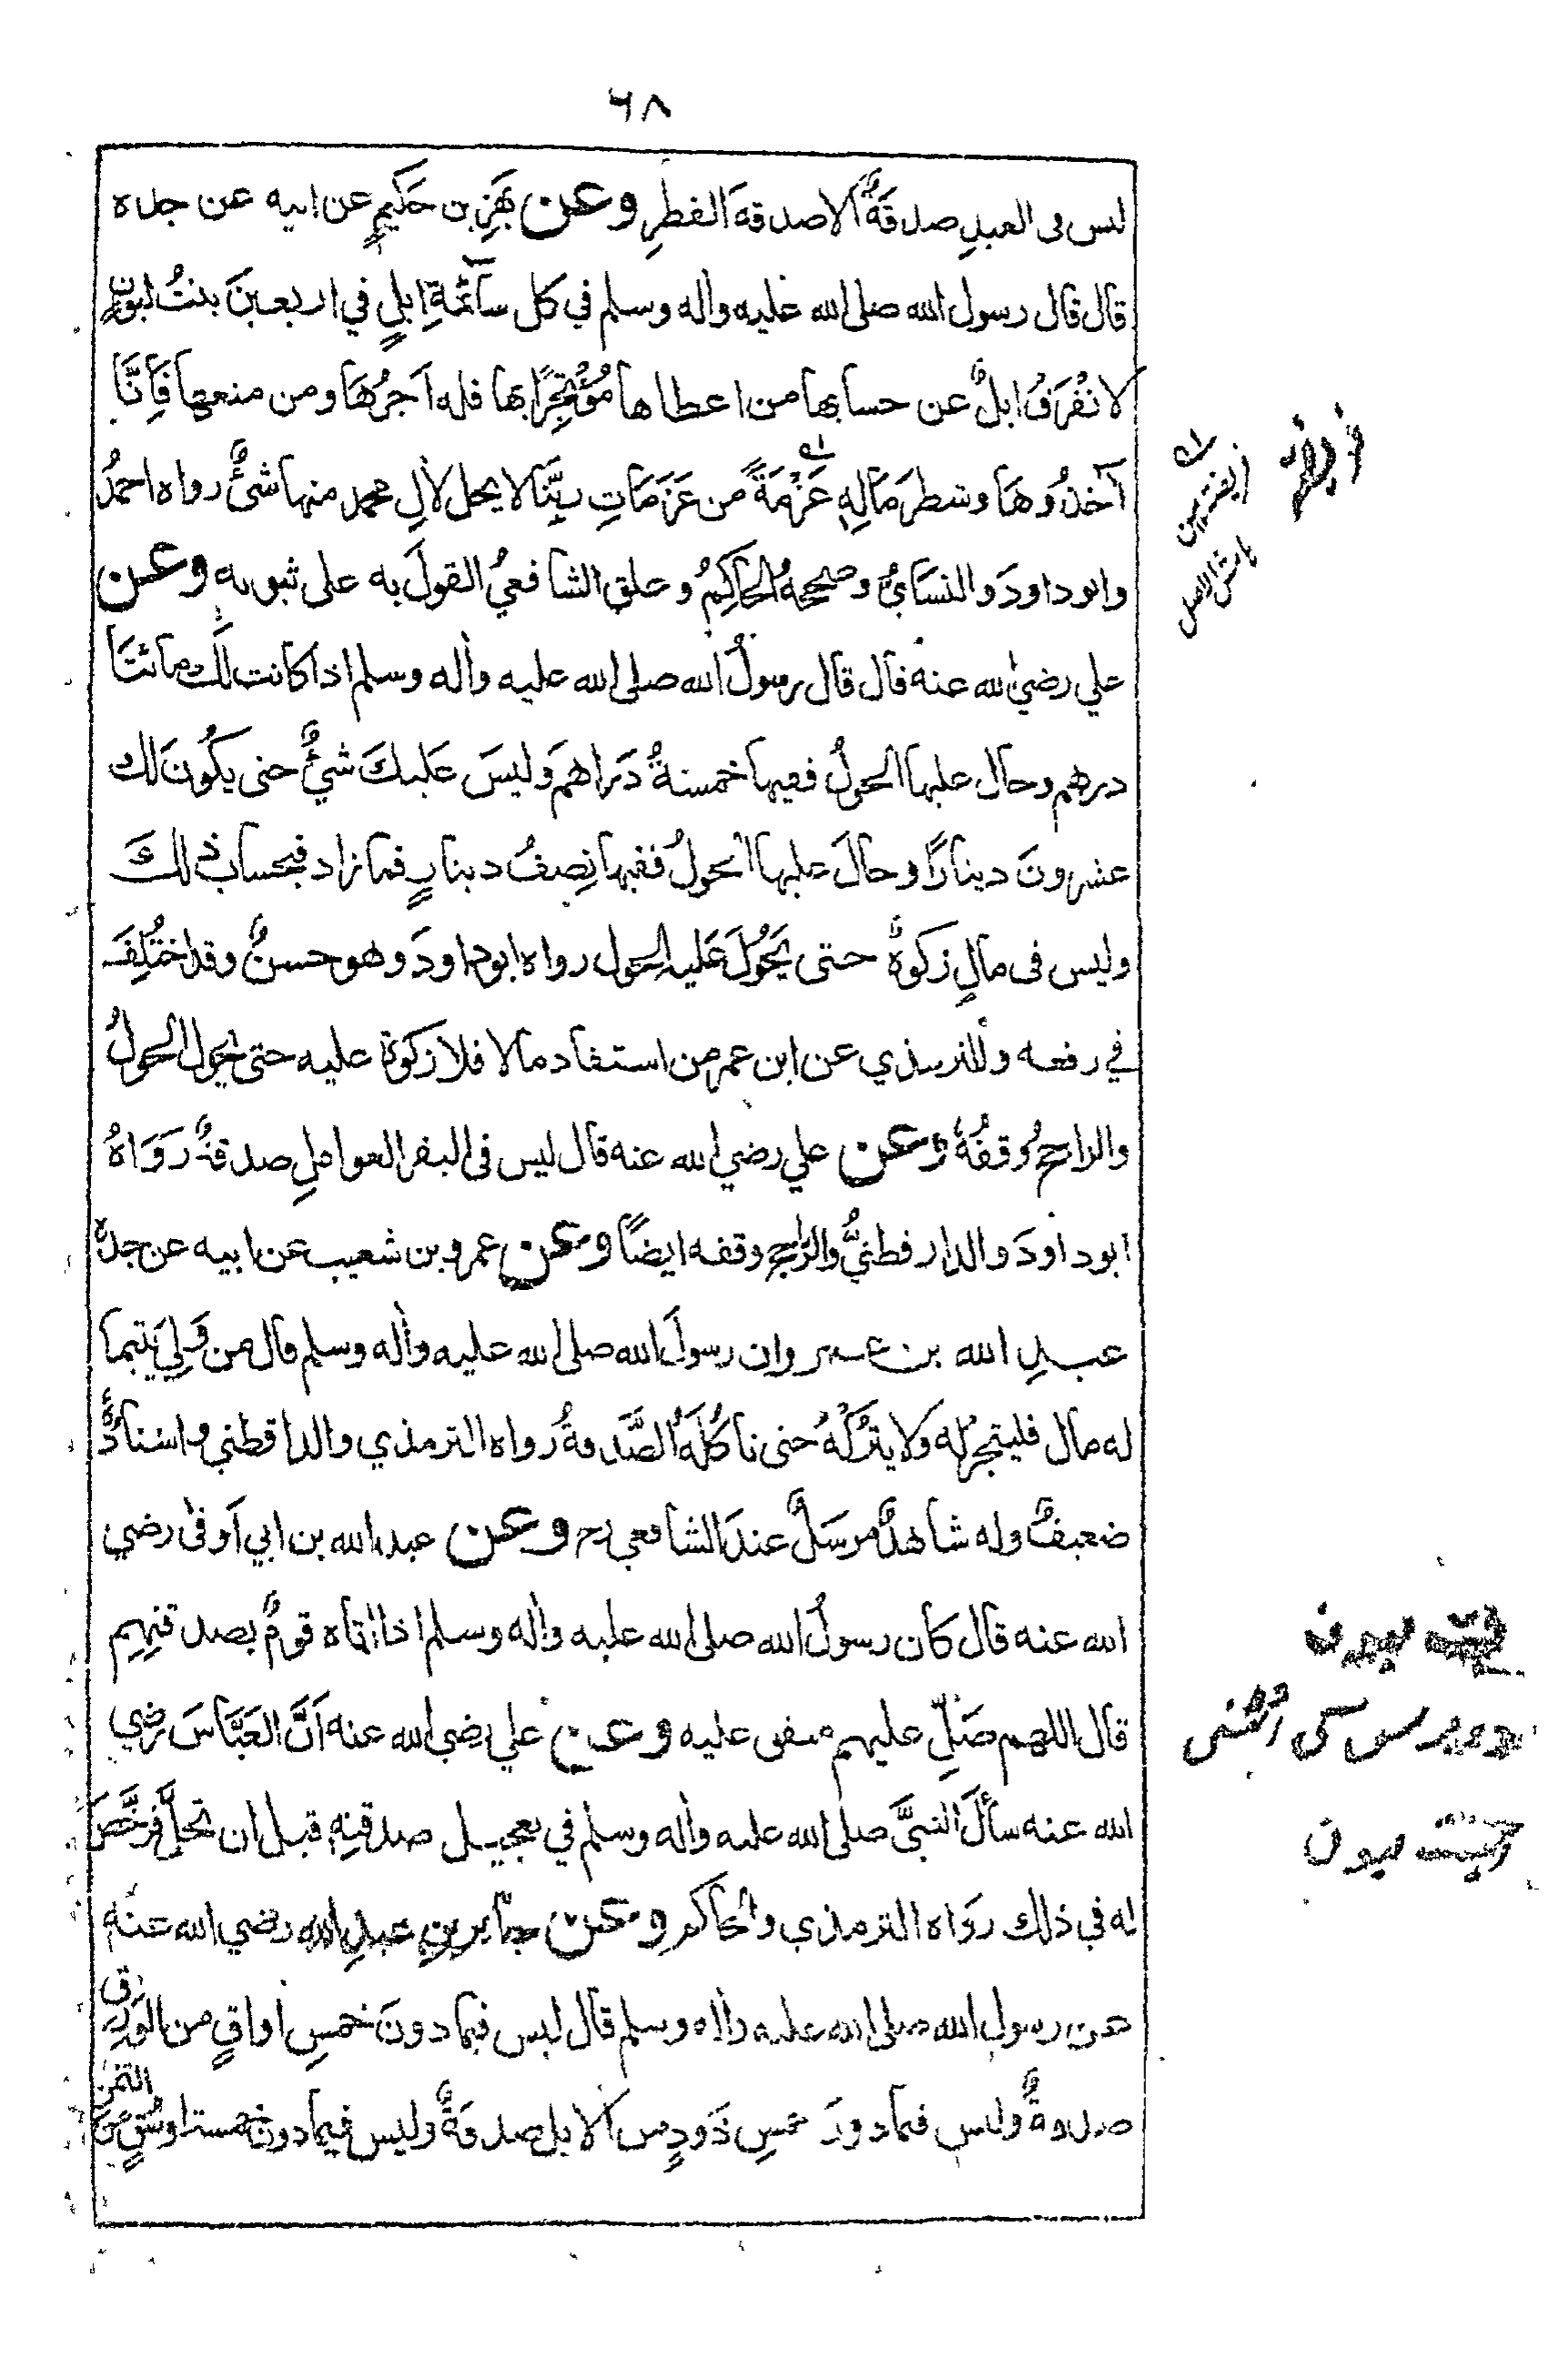 ٦٨
ليس في العبدِ صدقةٌ الا صدقة الفطرِ وعن بَهزِ بن حَكيمٍ عن ابيه عن جده
قال قال رسول الله صلى الله عليه واٰله وسلم في كل سآئمةِ ابلٍ في اربعينَ بنتُ لبونٍ
لا تُفرَقُ ابلٌ عن حسابها من اعطاها مُؤتجِرًا بها فله اَجرُهَا ومن منعها فَاِنَّا
آخذُوهَا وشطرَ مَالِهٖ عَزْمَةً من عَزَمَاتِ ربِّنَا لا يحل لاٰلِ محمد منها شئٌ رواه احمدُ
وابوداودَ والنسَائيُّ وصححهُ الحَاكِمُ وعلق الشافعيُ القولَ به على ثبوته وعن
علي رضي الله عنه قال قال رسولُ الله صلى الله عليه واٰله وسلم اذا كانت لَكَ مائتَا
درهم وحال عليها الحولُ ففيها خمسةُ دَراهمَ وَليسَ عَليكَ شيٌ حتى يكُونَ لك
عشرونَ دينارًا وحالَ عليها الحولُ ففيها نِصفُ دينارٍ فما زاد فبحساب ذٰلكَ
وليس فى مالٍ زكوةٌ حتى يَحُولَ عَليه الحول رواه ابوداودَ وهو حسنٌ وقد اختُلِفَ
في رفعه وللترمذي عن ابن عمر من استفاد مالا فلا زكوة عليه حتى يحول الحولُ
والراجحُ وقفُهُ وعن علي رضي الله عنه قال ليس فى البقر العواملِ صدقةٌ رَوَاهُ
ابوداودَ والدارقطنيُّ والرَّاجح وقفه ايضًا وعن عمرو بن شعيب عن ابيه عن جده
عبدِ الله بن عمرو ان رسولَ الله صلى الله عليه واٰله وسلم قال من وَلِيَ يتيما
له مال فليتجر له ولا يترُكْهُ حتى تاكُلَهُ الصَّدقةُ رواه الترمذي والدارقطني واسنادُهٗ
ضعيفٌ وله شاهدٌ مرسَلٌ عندَ الشافعي رح وعن عبد الله بن ابي اَوفىٰ رضي
الله عنه قال كان رسولُ الله صلى الله عليه واٰله وسلم اذا اتاه قومٌ بصدقتِهِم
قال اللهم صَلِّ عليهم متفق عليه وعن علي رضي الله عنه اَنَّ العَبَّاسَ رضي
الله عنه سأَلَ النبيَّ صلى الله عليه واٰله وسلم في تعجيل صدقتِهٖ قبل ان تحلَّ فرخَّصَ
له في ذٰلك رَوَاه الترمذي والحاكم وعن جابرِ بنِ عبدِ الله رضي الله عنه
عن رسول الله صلى الله عليه واٰله وسلم قال ليس فيما دونَ خمسِ اواقٍ من الوَرِقِ
صدقةٌ وليس فيما دونَ خمسِ ذَودٍ من الابل صدقةٌ وليس فيما دون خمسة اوسُقٍ مِنَ التمر